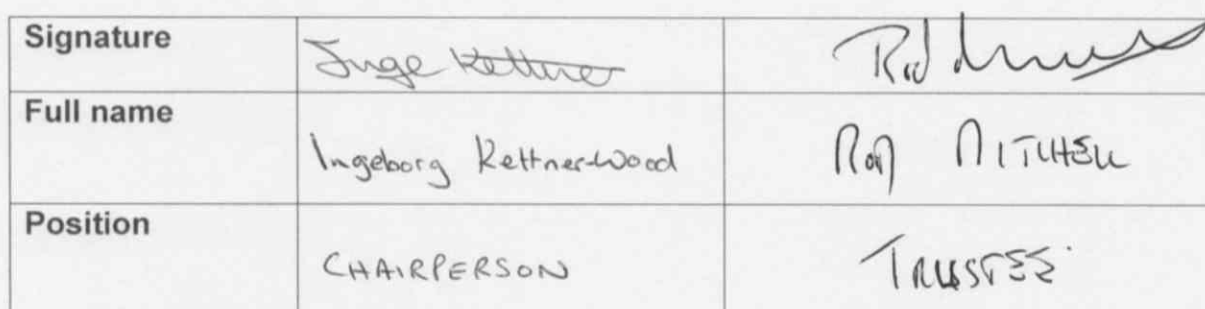 Signature Inge Kettner Rod
Full name Ingeborg Kettner-Wood Rod MITCHELL
Position CHAIRPERSON TRUSTEE